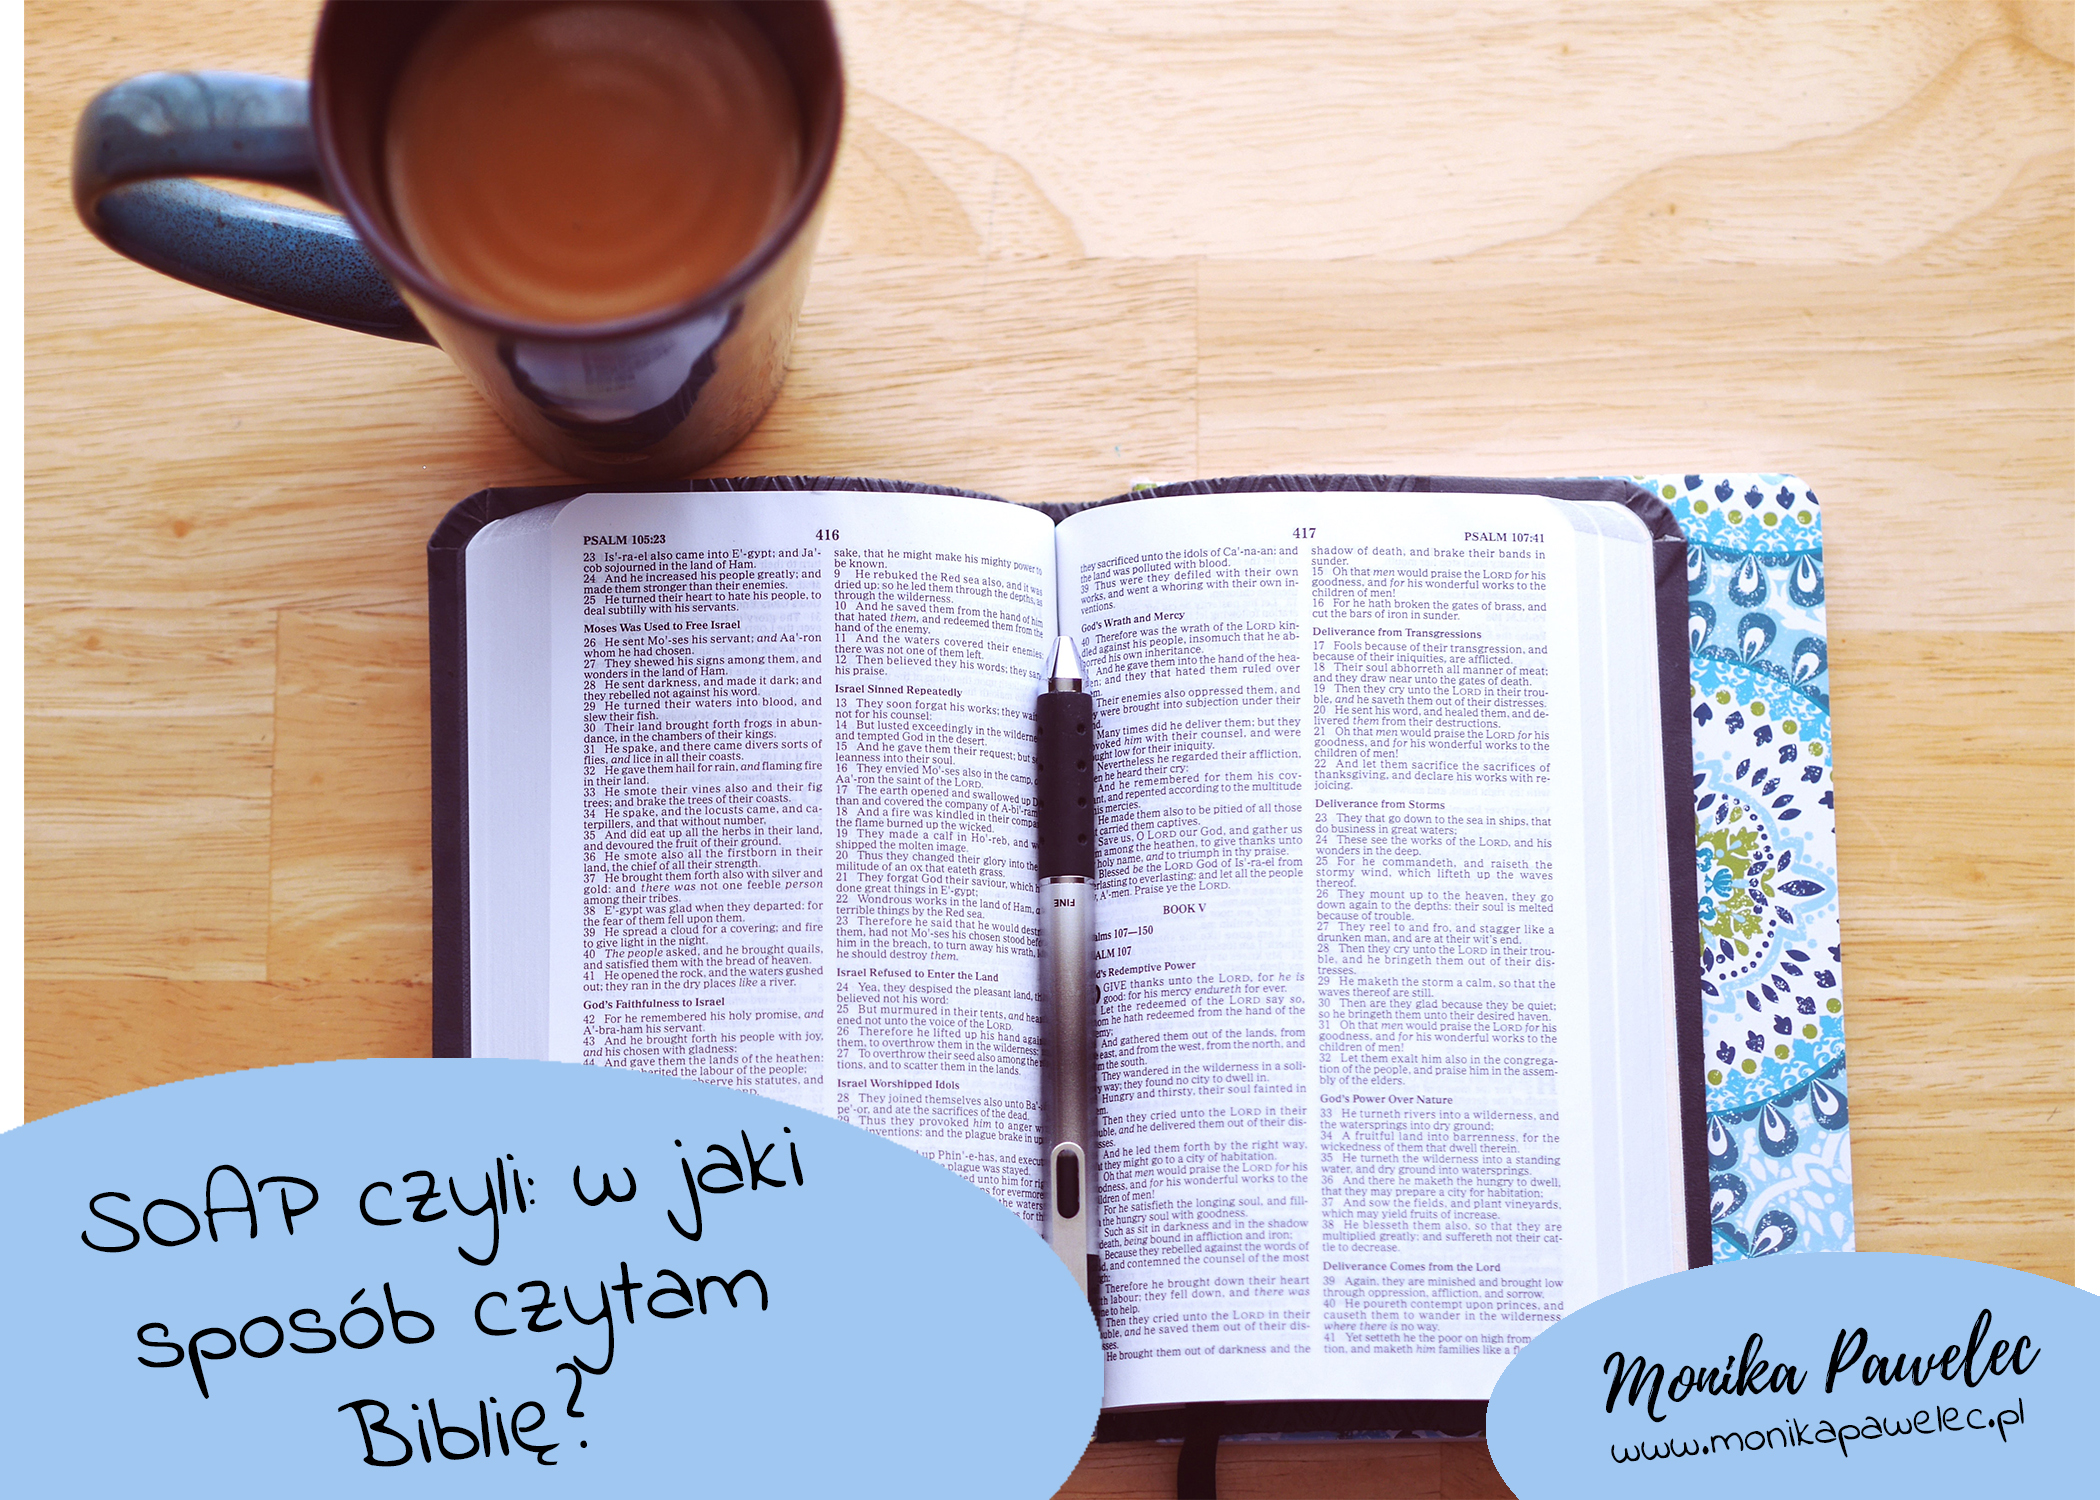 PSALM 105:23
416
23 Is'-ra-el also came into E'-gypt; and Ja'-
cob sojourned in the land of Ham.
24 And he increased his people greatly; and
made them stronger than their enemies.
25 He turned their heart to hate his people, to
deal subtilly with his servants.
Moses Was Used to Free Israel
26 He sent Mo'-ses his servant; and Aa'-ron
whom he had chosen.
27 They shewed his signs among them, and
wonders in the land of Ham.
28 He sent darkness, and made it dark; and
they rebelled not against his word.
29 He turned their waters into blood, and
slew their fish.
30 Their land brought forth frogs in abun-
dance, in the chambers of their kings.
31 He spake, and there came divers sorts of
flies, and lice in all their coasts.
32 He gave them hail for rain, and flaming fire
in their land.
33 He smote their vines also and their fig
trees; and brake the trees of their coasts.
34 He spake, and the locusts came, and ca-
terpillers, and that without number,
35 And did eat up all the herbs in their land,
and devoured the fruit of their ground.
36 He smote also all the firstborn in their
land, the chief of all their strength.
37 He brought them forth also with silver and
gold: and there was not one feeble person
among their tribes.
38 E'-gypt was glad when they departed: for
the fear of them fell upon them.
39 He spread a cloud for a covering; and fire
to give light in the night.
40 The people asked, and he brought quails,
and satisfied them with the bread of heaven.
41 He opened the rock, and the waters gushed
out; they ran in the dry places like a river.
God's Faithfulness to Israel
42 For he remembered his holy promise, and
A'-bra-ham his servant.
43 And he brought forth his people with joy,
and his chosen with gladness:
44 And gave them the lands of the heathen:
inherited the labour of the people;
observe his statutes, and
sake, that he might make his mighty power to
be known.
9 He rebuked the Red sea also, and it was
dried up: so he led them through the depths, as
through the wilderness.
10 And he saved them from the hand of him
that hated them, and redeemed them from the
hand of the enemy.
11 And the waters covered their enemies:
there was not one of them left.
12 Then believed they his words; they sang
his praise.
Israel Sinned Repeatedly
13 They soon forgat his works; they
not for his counsel:
14 But lusted exceedingly in the
and tempted God in the desert.
15 And he gave them their request; but
leanness into their soul.
16 They envied Mo'-ses also in the camp,
Aa'-ron the saint of the LORD.
17 The earth opened and swallowed up
than and covered the company of
18 And a fire was kindled in their
the flame burned up the wicked.
19 They made a calf in Ho'-reb, and
shipped the molten image.
20 Thus they changed their glory into the
militude of an ox that eateth grass.
21 They forgat God their saviour, which
done great things in E'-gypt;
22 Wondrous works in the land of Ham,
terrible things by the Red sea.
23 Therefore he said that he would
them, had not Mo'-ses his chosen stood
him in the breach, to turn away his wrath,
he should destroy them.
Israel Refused to Enter the Land
24 Yea, they despised the pleasant land,
believed not his word:
25 But murmured in their tents, and
ened not unto the voice of the LORD.
26 Therefore he lifted up his hand
them, to overthrow them in the wilderness:
27 To overthrow their seed also among the
tions, and to scatter them in the lands.
Israel Worshipped Idols
28 They joined themselves also unto Ba'-
pe'-or, and ate the sacrifices of the dead.
29 Thus they provoked him to anger
inventions: and the plague brake in
up Phin'-e-has, and
plague was stayed.
unto him for
for
the waters
for
417
PSALM 107:41
they sacrificed unto the idols of Ca'-na-an: and
the land was polluted with blood.
39 Thus were they defiled with their own
works, and went a whoring with their own in-
ventions.
God's Wrath and Mercy
40 Therefore was the wrath of the LORD kin-
dled against his people, insomuch that he ab-
his own inheritance.
And he gave them into the hand of the hea-
and they that hated them ruled over
Their enemies also oppressed them, and
were brought into subjection under their
Many times did he deliver them; but they
him with their counsel, and were
low for their iniquity.
Nevertheless he regarded their affliction,
he heard their cry:
And he remembered for them his cov-
and repented according to the multitude
mercies.
He made them also to be pitied of all those
carried them captives.
Save us, O LORD our God, and gather us
among the heathen, to give thanks unto
holy name, and to triumph in thy praise.
Blessed be the LORD God of Is'-ra-el from
to everlasting: and let all the people
A'-men. Praise ye the LORD.
BOOK V
107—150
107
Redemptive Power
GIVE thanks unto the LORD, for he is
good: for his mercy endureth for ever.
Let the redeemed of the LORD say so,
he hath redeemed from the hand of the
And gathered them out of the lands, from
east, and from the west, from the north, and
the south.
They wandered in the wilderness in a soli-
way; they found no city to dwell in.
Hungry and thirsty, their soul fainted in
Then they cried unto the LORD in their
and he delivered them out of their dis-
And he led them forth by the right way,
they might go to a city of habitation.
Oh that men would praise the LORD for his
and for his wonderful works to the
of men!
For he satisfieth the longing soul, and fill-
the hungry soul with goodness.
Such as sit in darkness and in the shadow
death, being bound in affliction and iron;
Because they rebelled against the words of
and contemned the counsel of the most
Therefore he brought down their heart
labour; they fell down, and there was
to help.
Then they cried unto the LORD in their
and he saved them out of their dis-
He brought them out of darkness and the
shadow of death, and brake their bands in
sunder.
15 Oh that men would praise the LORD for his
goodness, and for his wonderful works to the
children of men!
16 For he hath broken the gates of brass, and
cut the bars of iron in sunder.
Deliverance from Transgressions
17 Fools because of their transgression, and
because of their iniquities, are afflicted.
18 Their soul abhorreth all manner of meat;
and they draw near unto the gates of death.
19 Then they cry unto the LORD in their trou-
ble, and he saveth them out of their distresses.
20 He sent his word, and healed them, and de-
livered them from their destructions.
21 Oh that men would praise the LORD for his
goodness, and for his wonderful works to the
children of men!
22 And let them sacrifice the sacrifices of
thanksgiving, and declare his works with re-
joicing.
Deliverance from Storms
23 They that go down to the sea in ships, that
do business in great waters;
24 These see the works of the LORD, and his
wonders in the deep.
25 For he commandeth, and raiseth the
stormy wind, which lifteth up the waves
thereof.
26 They mount up to the heaven, they go
down again to the depths: their soul is melted
because of trouble.
27 They reel to and fro, and stagger like a
drunken man, and are at their wit's end.
28 Then they cry unto the LORD in their trou-
ble, and he bringeth them out of their dis-
tresses.
29 He maketh the storm a calm, so that the
waves thereof are still.
30 Then are they glad because they be quiet;
so he bringeth them unto their desired haven.
31 Oh that men would praise the LORD for his
goodness, and for his wonderful works to the
children of men!
32 Let them exalt him also in the congrega-
tion of the people, and praise him in the assem-
bly of the elders.
God's Power Over Nature
33 He turneth rivers into a wilderness, and
the watersprings into dry ground;
34 A fruitful land into barrenness, for the
wickedness of them that dwell therein.
35 He turneth the wilderness into a standing
water, and dry ground into watersprings.
36 And there he maketh the hungry to dwell,
that they may prepare a city for habitation;
37 And sow the fields, and plant vineyards,
which may yield fruits of increase.
38 He blesseth them also, so that they are
multiplied greatly; and suffereth not their cat-
tle to decrease.
Deliverance Comes from the Lord
39 Again, they are minished and brought low
through oppression, affliction, and sorrow.
40 He poureth contempt upon princes, and
causeth them to wander in the wilderness,
where there is no way.
41 Yet setteth he the poor on high from
tion, and maketh him families like a
FINE
SOAP czyli: w jaki
sposób czytam
Biblię?
Monika Pawelec
www.monikapawelec.pl